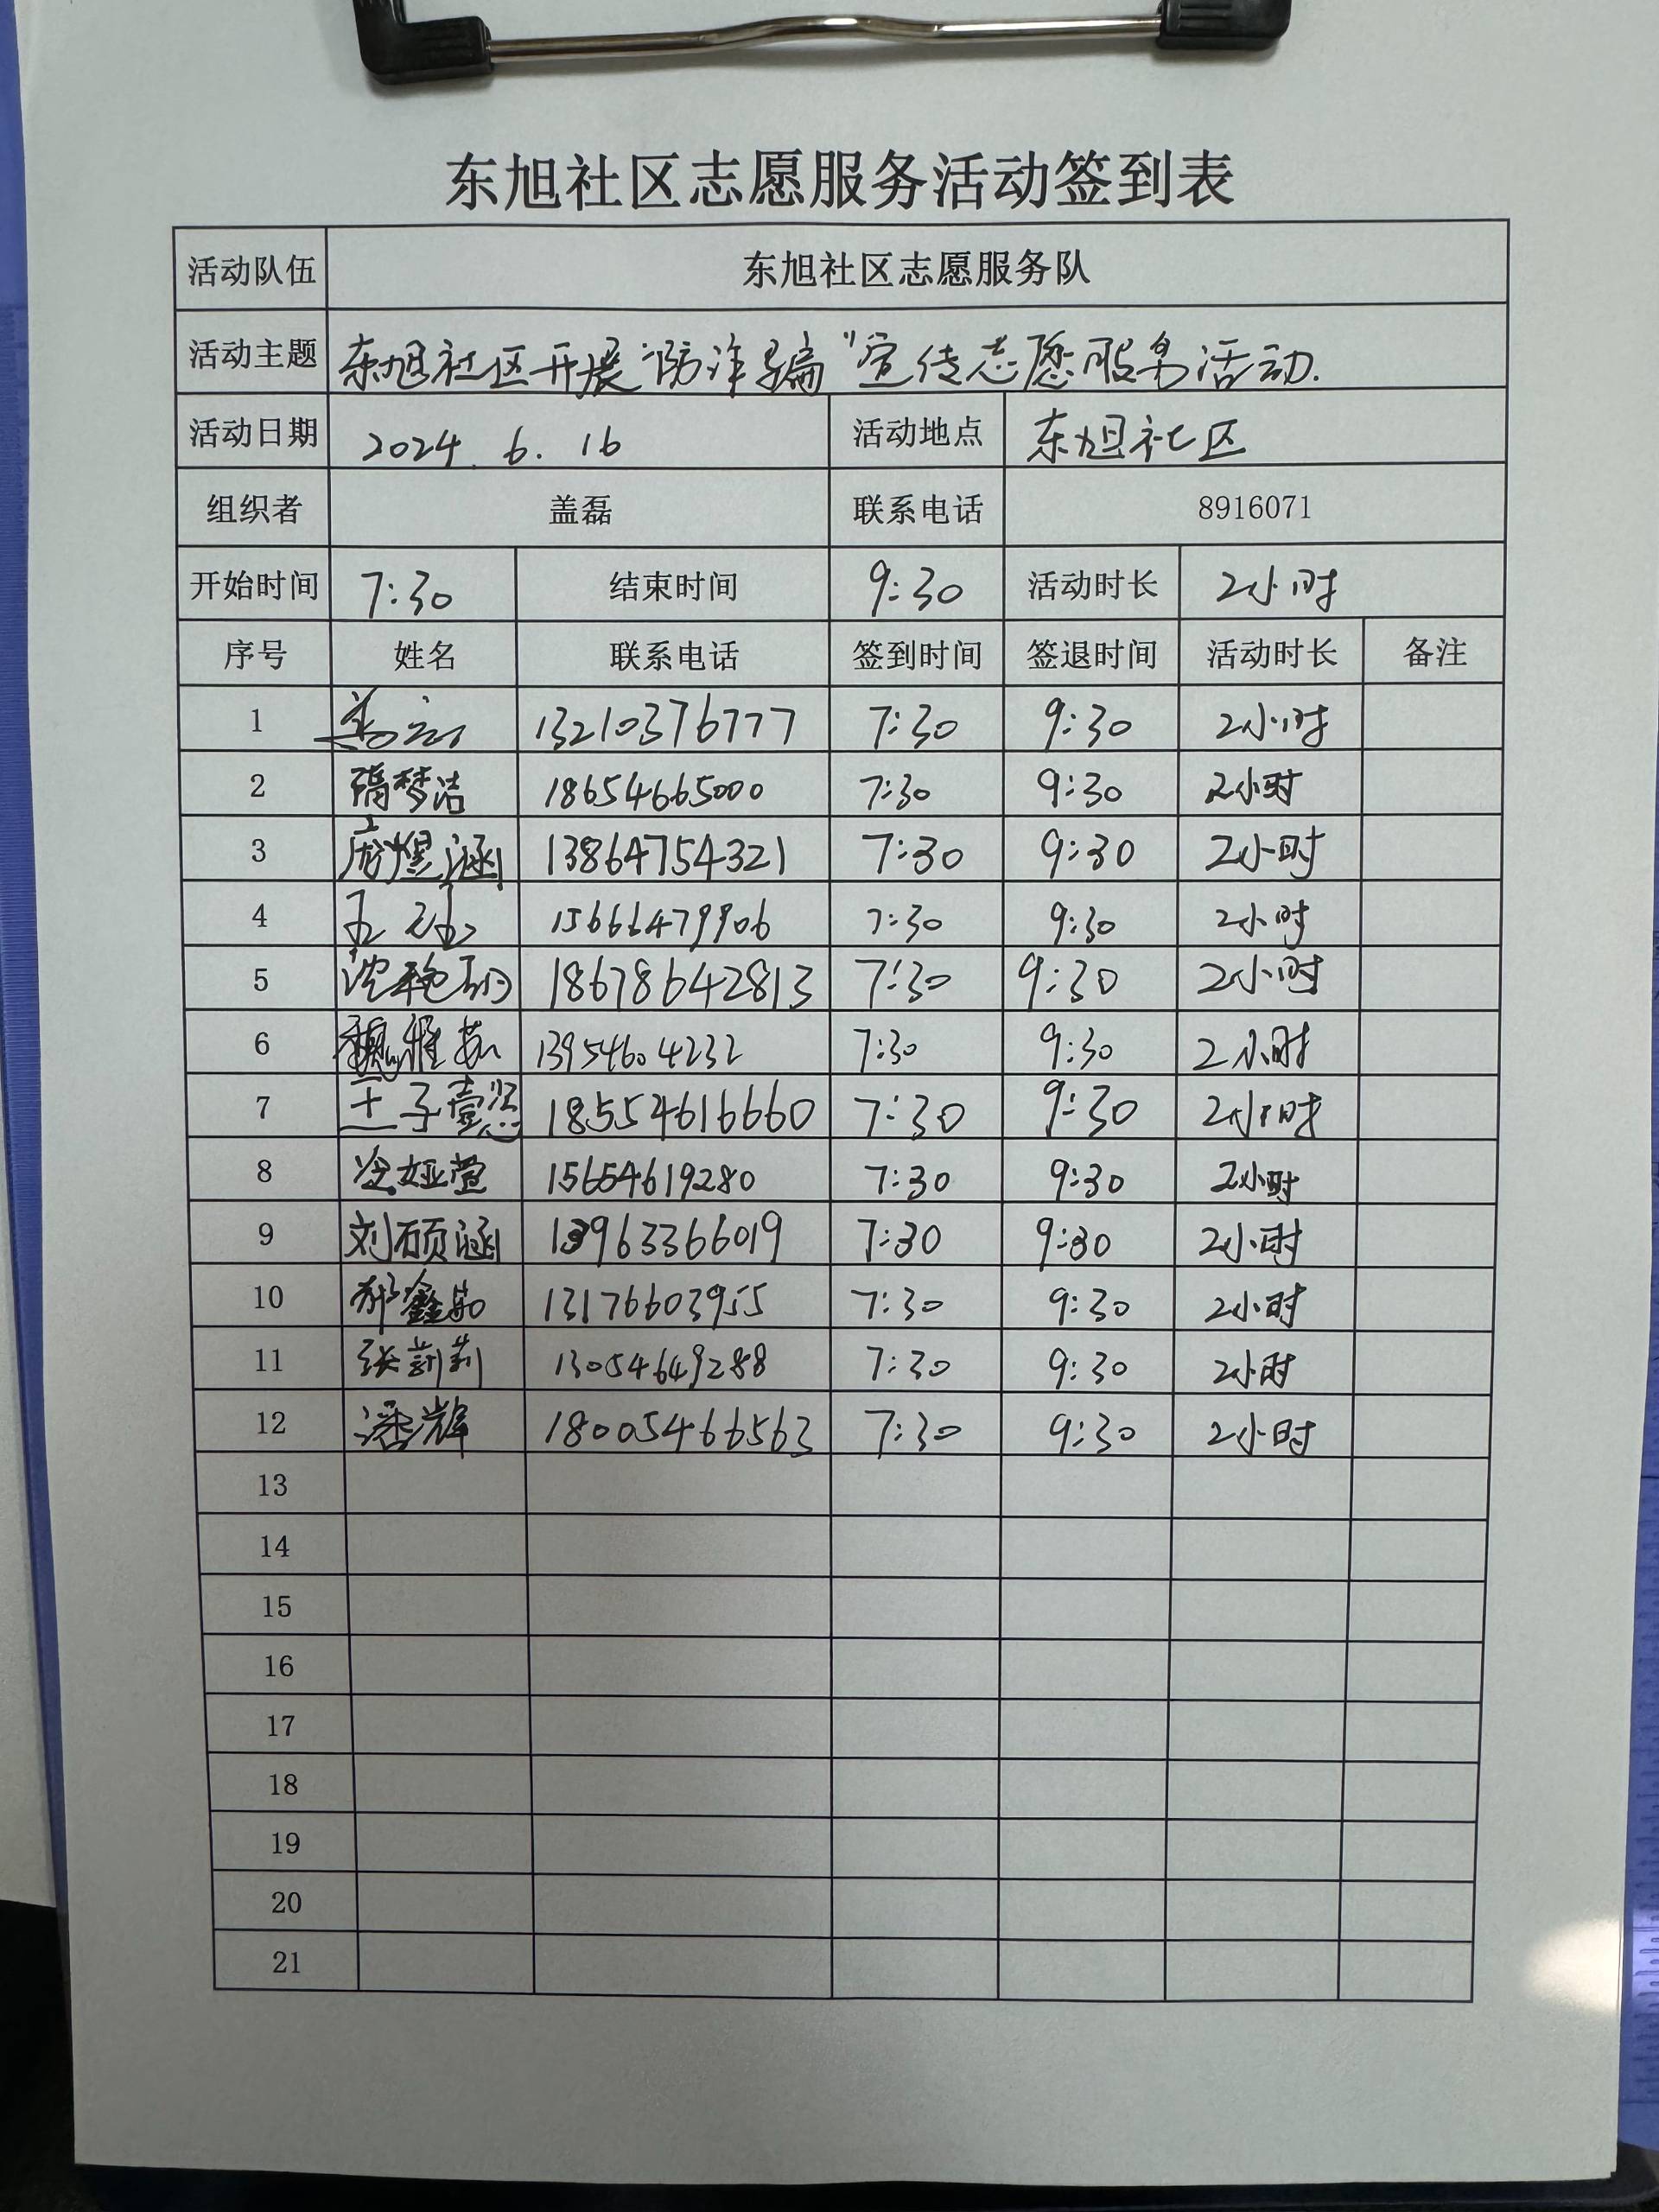 东旭社区志愿服务活动签到表
活动队伍 东旭社区志愿服务队
活动主题 东旭社区开展“防诈骗”宣传志愿服务活动.
活动日期 2024.6.16 活动地点 东旭社区
组织者 盖磊 联系电话 8916071
开始时间 7:30 结束时间 9:30 活动时长 2小时
序号 姓名 联系电话 签到时间 签退时间 活动时长 备注
1 盖磊 13210376777 7:30 9:30 2小时
2 隋梦洁 18654665000 7:30 9:30 2小时
3 13864754321 7:30 9:30 2小时
4 15666479906 7:30 9:30 2小时
5 沈艳 18678642813 7:30 9:30 2小时
6 魏雅茹 13954604232 7:30 9:30 2小时
7 王子懿 18554616660 7:30 9:30 2小时
8 冷娅萱 15654619280 7:30 9:30 2小时
9 刘硕涵 13963366019 7:30 9:30 2小时
10 郝鑫茹 13176603955 7:30 9:30 2小时
11 张莉莉 13054649288 7:30 9:30 2小时
12 潘辉 18005466563 7:30 9:30 2小时
13
14
15
16
17
18
19
20
21